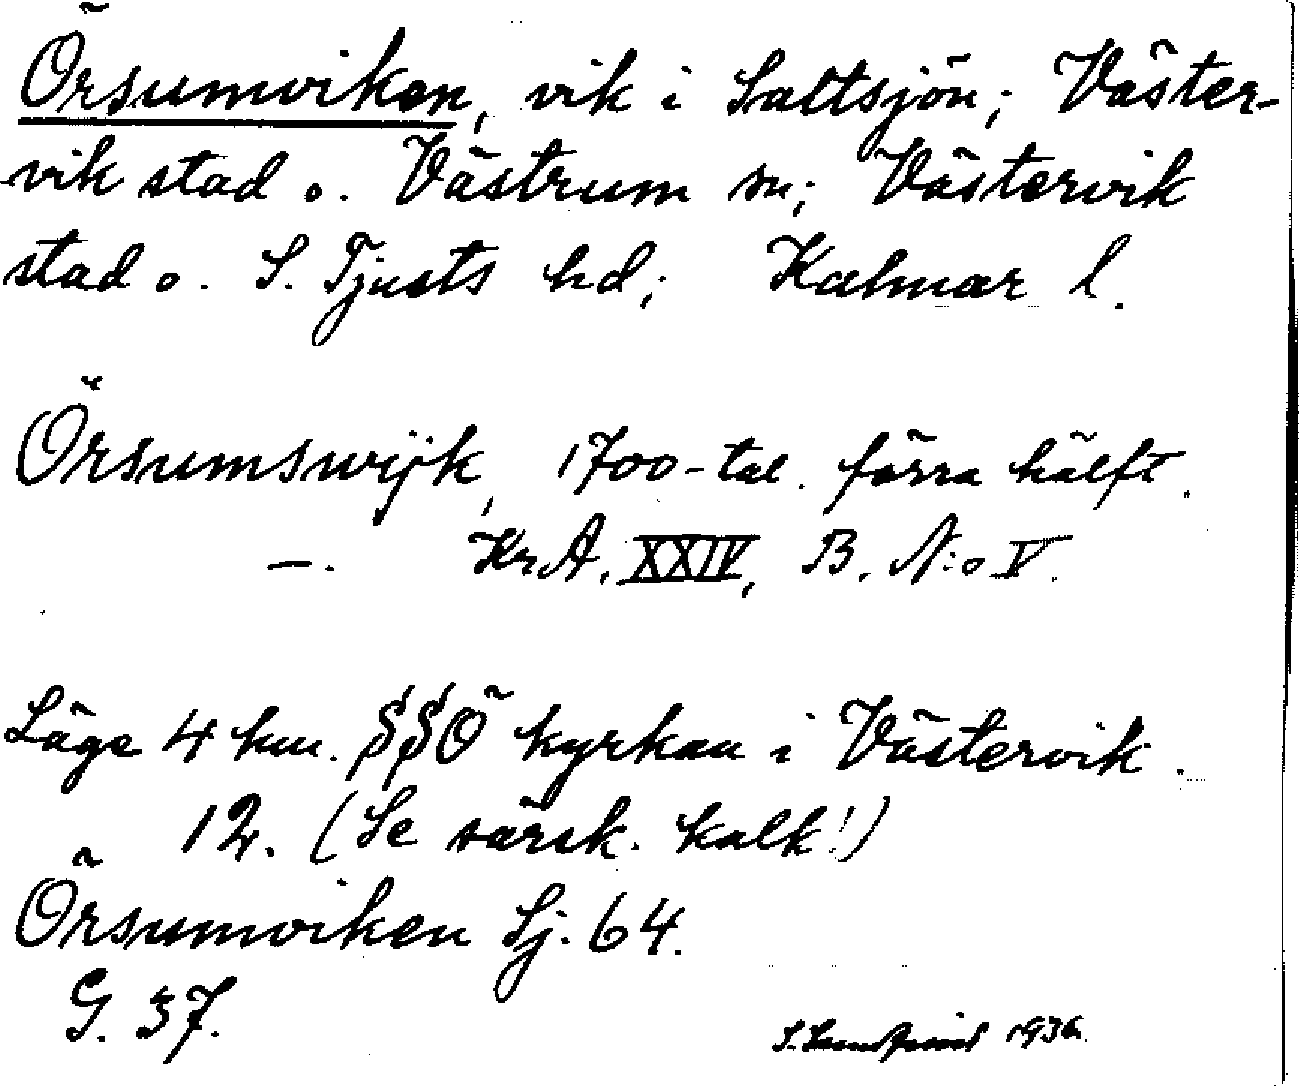 Örsumviken, vik i Saltsjön; Väster-
vik stad o. Västrum sn; Västervik
stad o. S. Tjusts hd; Kalmar l.
Örsumswijk, 1700-tal. förra hälft.
—. Kr.A. XXIV, B. N:o V.
Läge 4 km. SSÖ kyrkan i Västervik.
12. (Se särsk. kalk!)
Örsumviken Sj. 64.
G. 37.
1936.